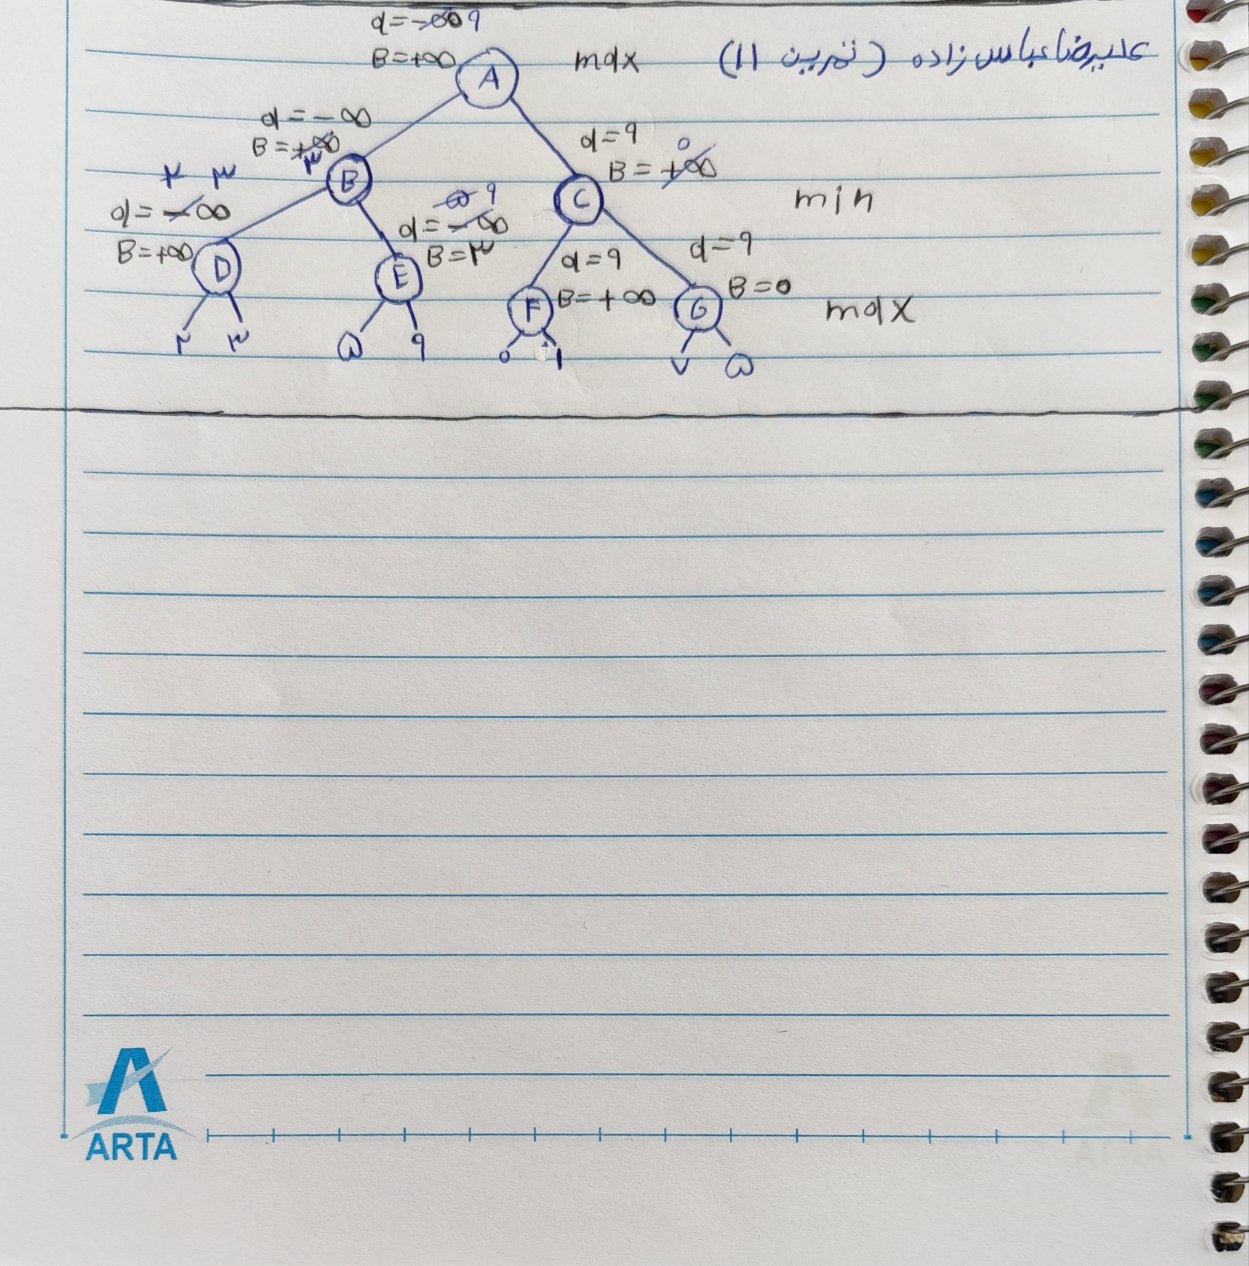 علیرضا عباس زاده (تمرین 11)
α=-∞ 9
B=+∞
A
max
α=-∞
B=+∞ ۳
B
α=9
B=+∞ 0
C
min
۲ ۳
α=-∞
B=+∞
D
۵ 9
α=-∞
B=۳
E
α=9
B=+∞
F
α=9
B=0
G
max
۲ ۳ ۵ 9 0 1 ۷ ۵
ARTA